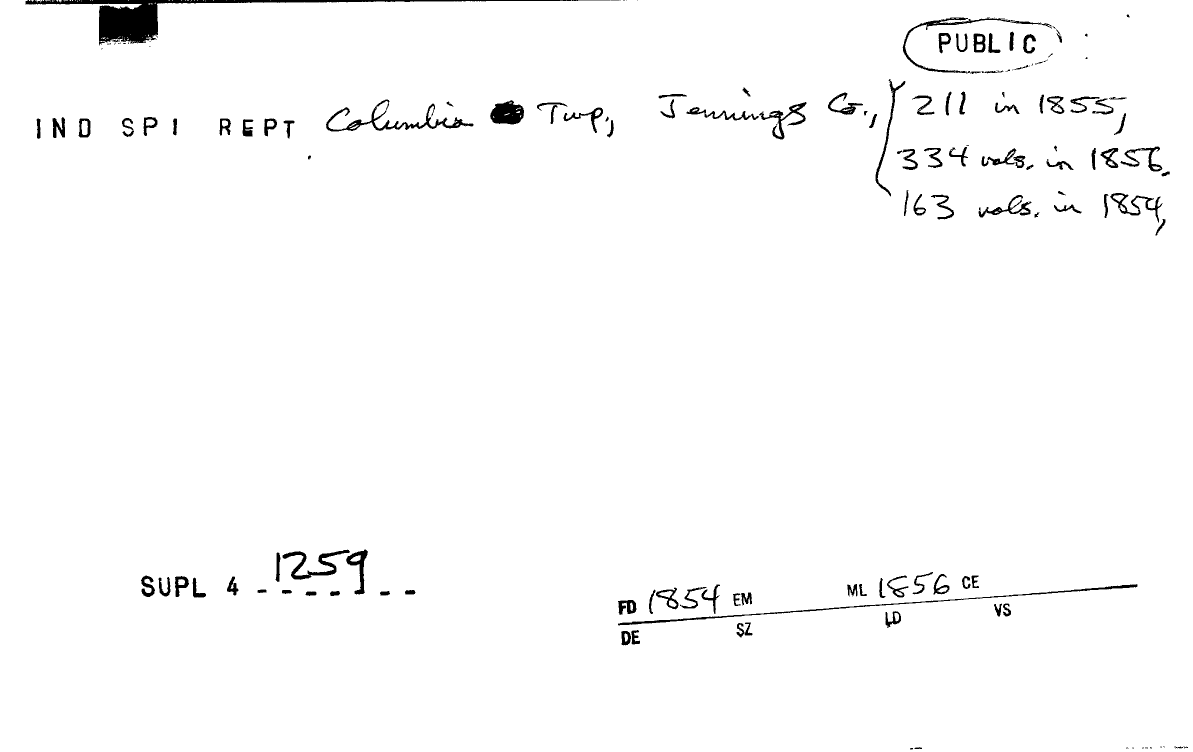 PUBLIC
IND SPI REPT Columbia Twp., Jennings Co., 211 in 1855,
334 vols. in 1856.
163 vols. in 1854,
SUPL 4 1259
FD 1854 EM ML 1856 CE
DE SZ LD VS